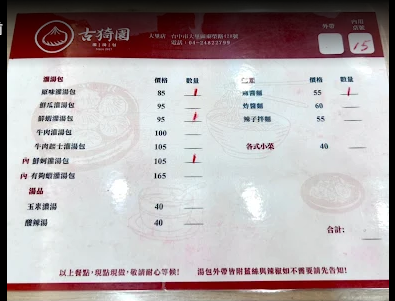 古猗園
電話：04-24822799
外帶
內用
15
灌湯包 價格 數量
原味灌湯包 85
鮮瓜灌湯包 95
蝦灌湯包 95
牛肉灌湯包 100
牛肉起士灌湯包 105
內 鮮蚵灌湯包 105
內 有夠蝦灌湯包 165
湯品
玉米濃湯 40
酸辣湯 40
價格 數量
麵 55
炸醬麵 60
辣子拌麵 55
各式小菜 40
合計：
以上餐點，現點現做，敬請耐心等候！ 湯包外帶皆附薑絲與辣椒如不需要請先告知！